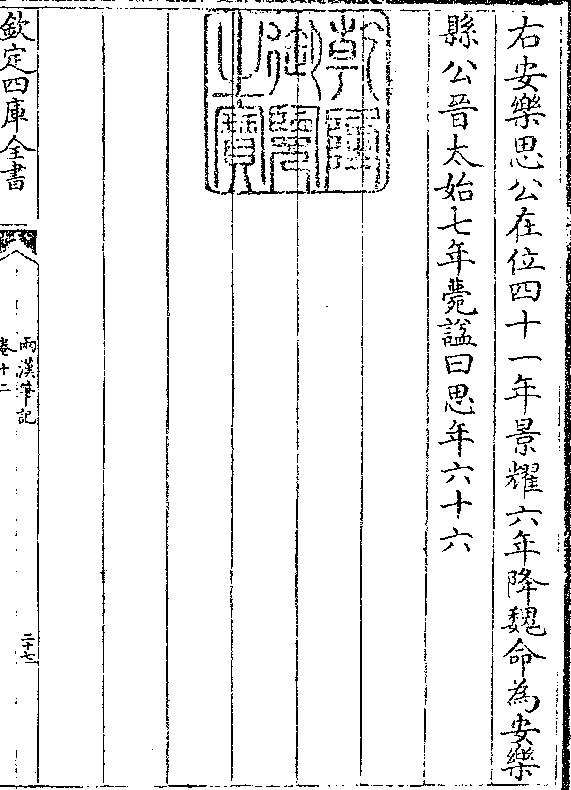 右安樂思公在位四十一年景耀六年降魏命為安樂
縣公晉太始七年薨諡曰思年六十六
乾隆
御覽
之寶
欽定四庫全書
兩漢筆記
卷十二
二十七